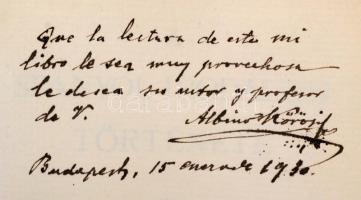 Que la lectura de este mi
libro le sea muy provechosa
le desea su autor y profesor
de V.
Albino Kőrösi
Budapest, 15 enero de 1930.